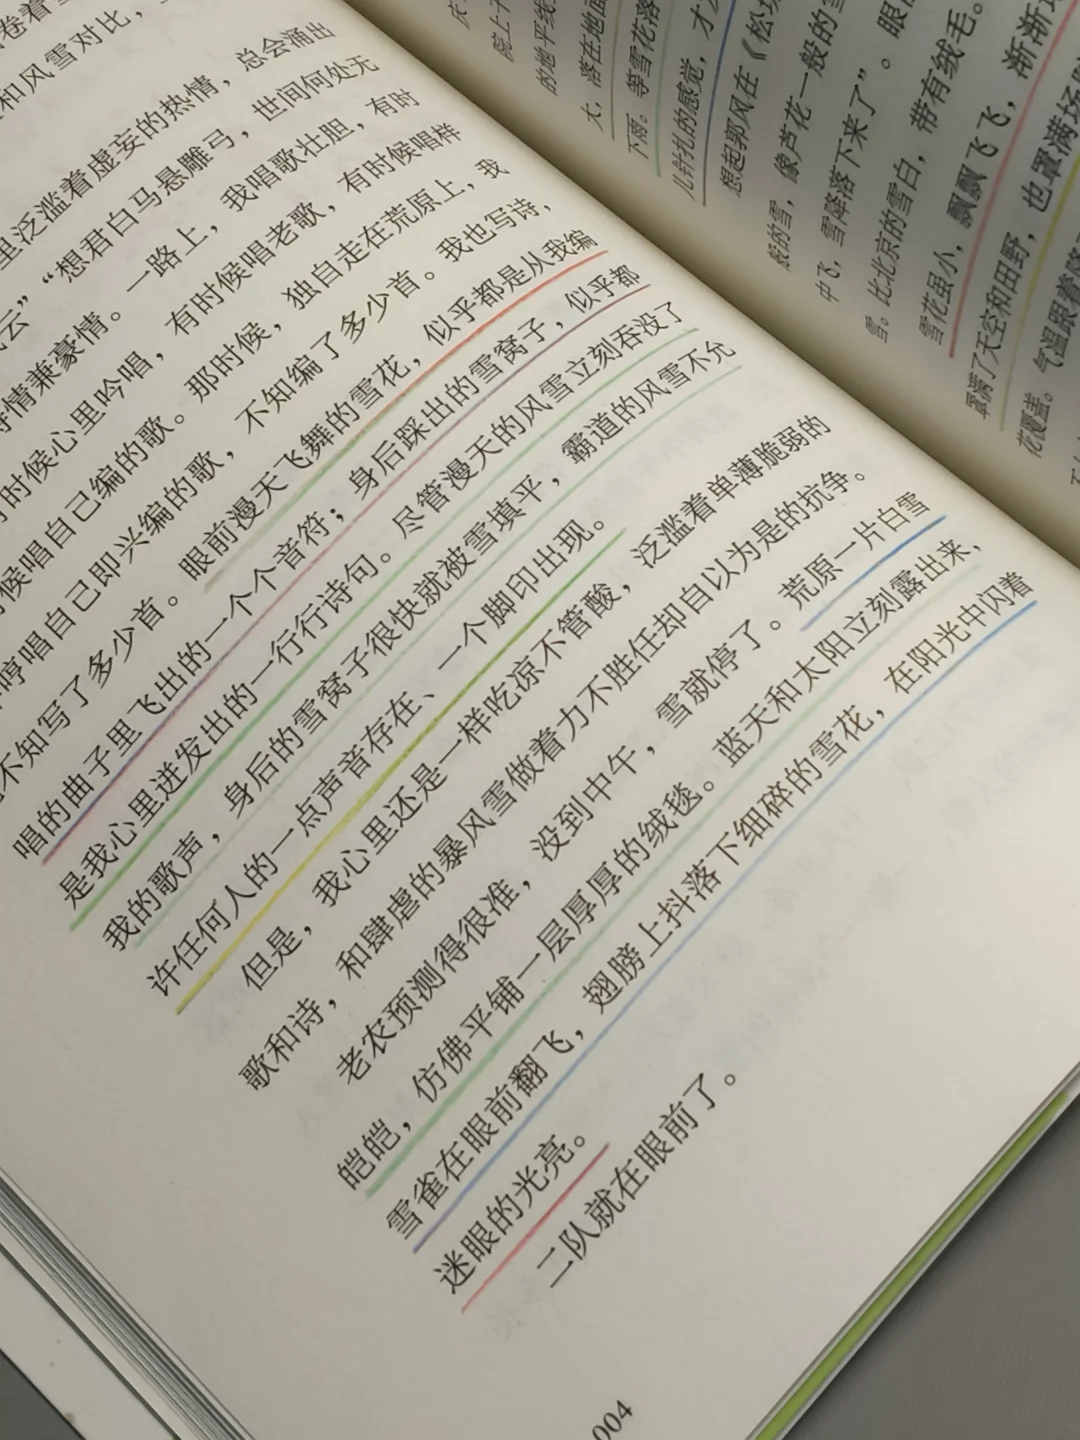 和风雪对比，
里泛滥着虚妄的热情，总会涌出
云”“想君白马悬雕弓，世间何处无
诗情兼豪情。一路上，我唱歌壮胆，有时
时候心里吟唱，有时候唱老歌，有时候唱样
候唱自己编的歌。那时候，独自走在荒原上，我
哼唱自己即兴编的歌，不知编了多少首。我也写诗，
不知写了多少首。眼前漫天飞舞的雪花，似乎都是从我编
唱的曲子里飞出的一个个音符；身后踩出的雪窝子，似乎都
是我心里迸发出的一行行诗句。尽管漫天的风雪立刻吞没了
我的歌声，身后的雪窝子很快就被雪填平，霸道的风雪不允
许任何人的一点声音存在、一个脚印出现。
但是，我心里还是一样吃凉不管酸，泛滥着单薄脆弱的
歌和诗，和肆虐的暴风雪做着力不胜任却自以为是的抗争。
老农预测得很准，没到中午，雪就停了。荒原一片白雪
皑皑，仿佛平铺一层厚厚的绒毯。蓝天和太阳立刻露出来，
雪雀在眼前翻飞，翅膀上抖落下细碎的雪花，在阳光中闪着
迷眼的光亮。
二队就在眼前了。
004
院上
的地平线
大，落在地面
下雨。等雪花落
儿针扎的感觉，才
想起郭风在《松
般的雪，像芦花一般的雪
中飞，雪降落下来了”。眼
雪。比北京的雪白，带有绒毛。
雪花虽小，飘飘飞飞，渐渐
罩满了天空和田野，也罩满场
花覆盖。气温跟着降